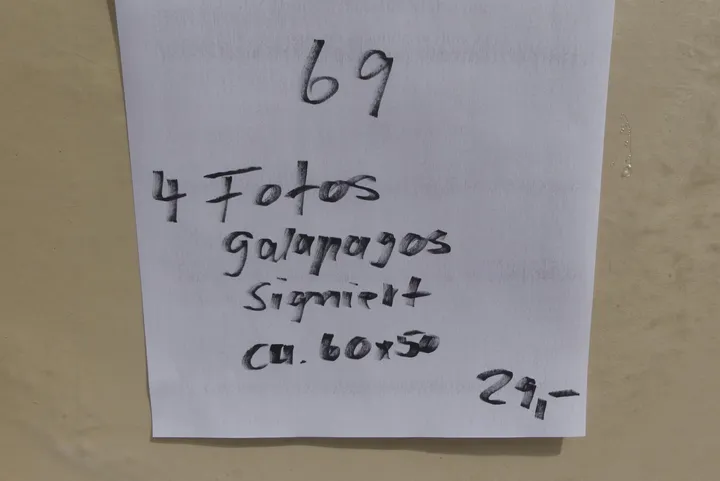 69
4 Fotos
galapagos
signiert
ca. 60x50
29,-